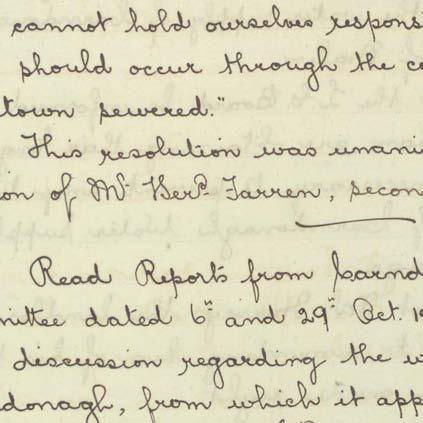 cannot hold ourselves respons
should occur through the c
town sewered."
This resolution was unani
on of Mr Berd. Farren, secon
Read Reports from Carnd
mittee dated 6th and 29th Oct. 19
discussion regarding the w
donagh, from which it app